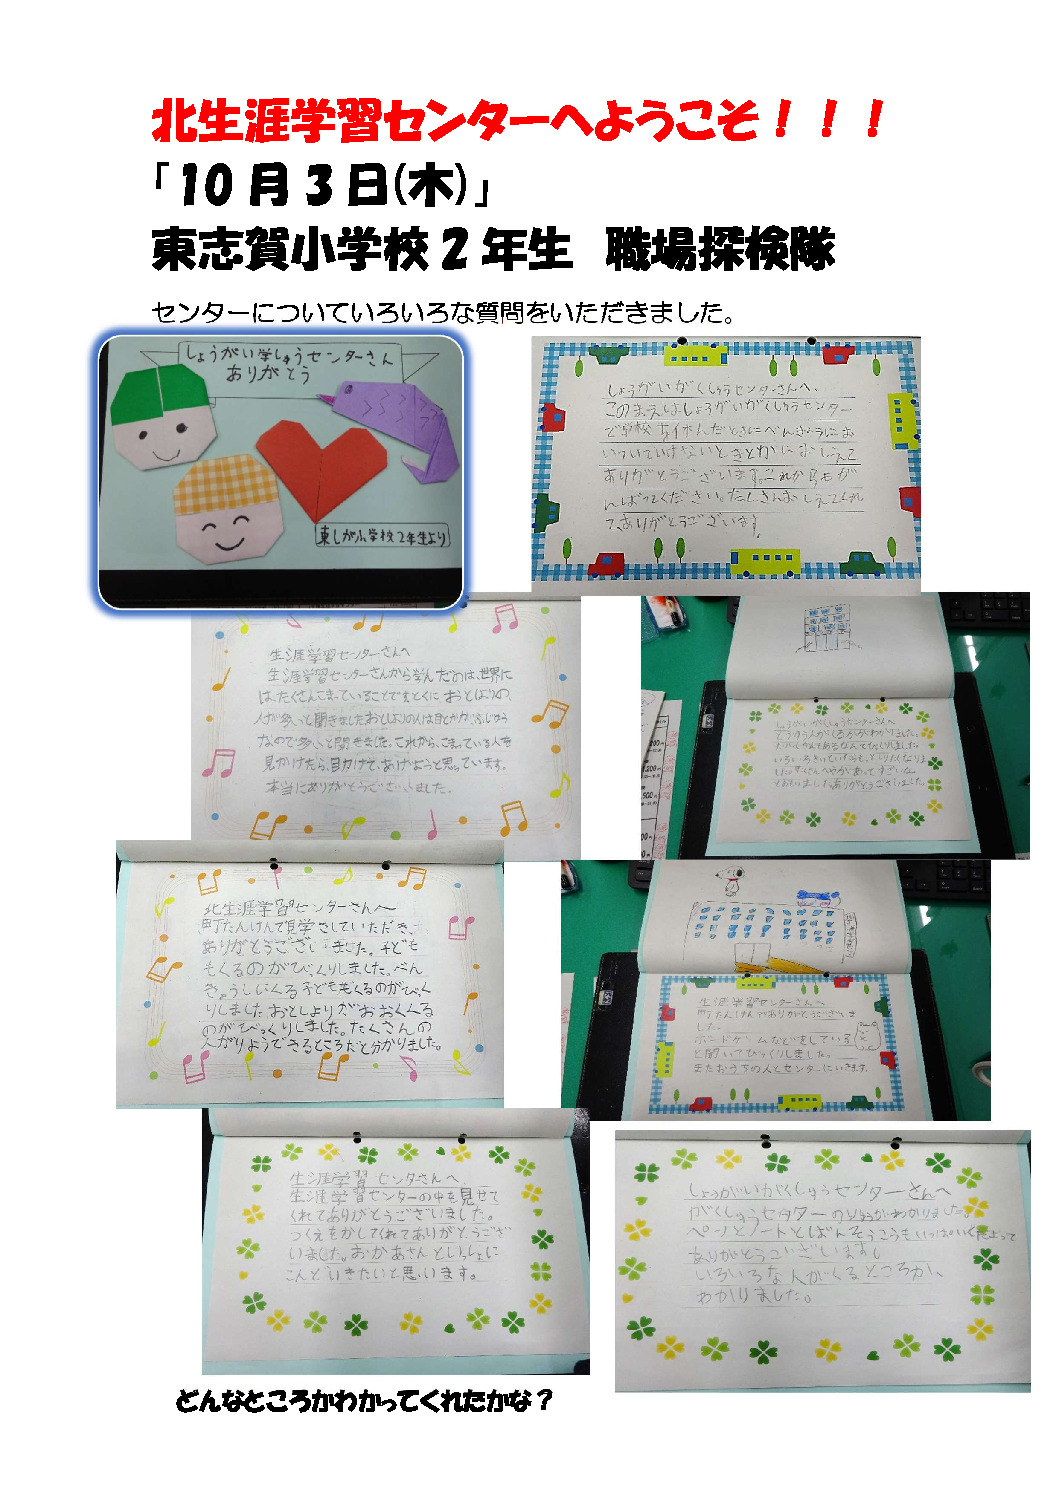 北生涯学習センターへようこそ！！！
「10月3日(木)」
東志賀小学校2年生　職場探検隊
センターについていろいろな質問をいただきました。
しょうがい学しゅうセンターさん
ありがとう
東しが小学校2年生より
しょうがいがくしゅうセンターさんへ、
このまえはしょうがいがくしゅうセンター
ありがとうございます。これからもが
んばってください。たくさんおしえてくれ
てありがとうございます。
生涯学習センターさんへ
生涯学習センターさんから学んだのは、世界に
は、たくさんこまっていることですとくにおとしよりの、
人が多いと聞きましたおとしよりの人は目とかがふじゆう
なので多いと聞きました。これから、こまっている人を
見かけたら、目かけて、あげようと思っています。
本当にありがとうございました。
しょうがいがくしゅうセンターさんへ
北生涯学習センターさんへ
町たんけんで見学させていただき、
ありがとうございました。子ども
もくるのがびっくりしました。べん
きょうしにくる子どももくるのがびっく
りしました。おとしよりがおおくくる
のがびっくりしました。たくさんの
人がりようできるところだと分かりました。
生涯学習センターさんへ
町たんけんでありがとうございま
した。
ボードゲームなどをしている
と聞いてびっくりしました。
またおうちの人とセンターにいきます。
生涯学習センターさんへ
生涯学習センターの中を見せて
くれてありがとうございました。
つくえをかしてくれてありがとうござ
いました。おかあさんといっしょに
こんどいきたいと思います。
しょうがいがくしゅうセンターさんへ
がくしゅうセンターのひょうがわかりました。
ありがとうございます。
いろいろな人がくるところが、
わかりました。
どんなところかわかってくれたかな？